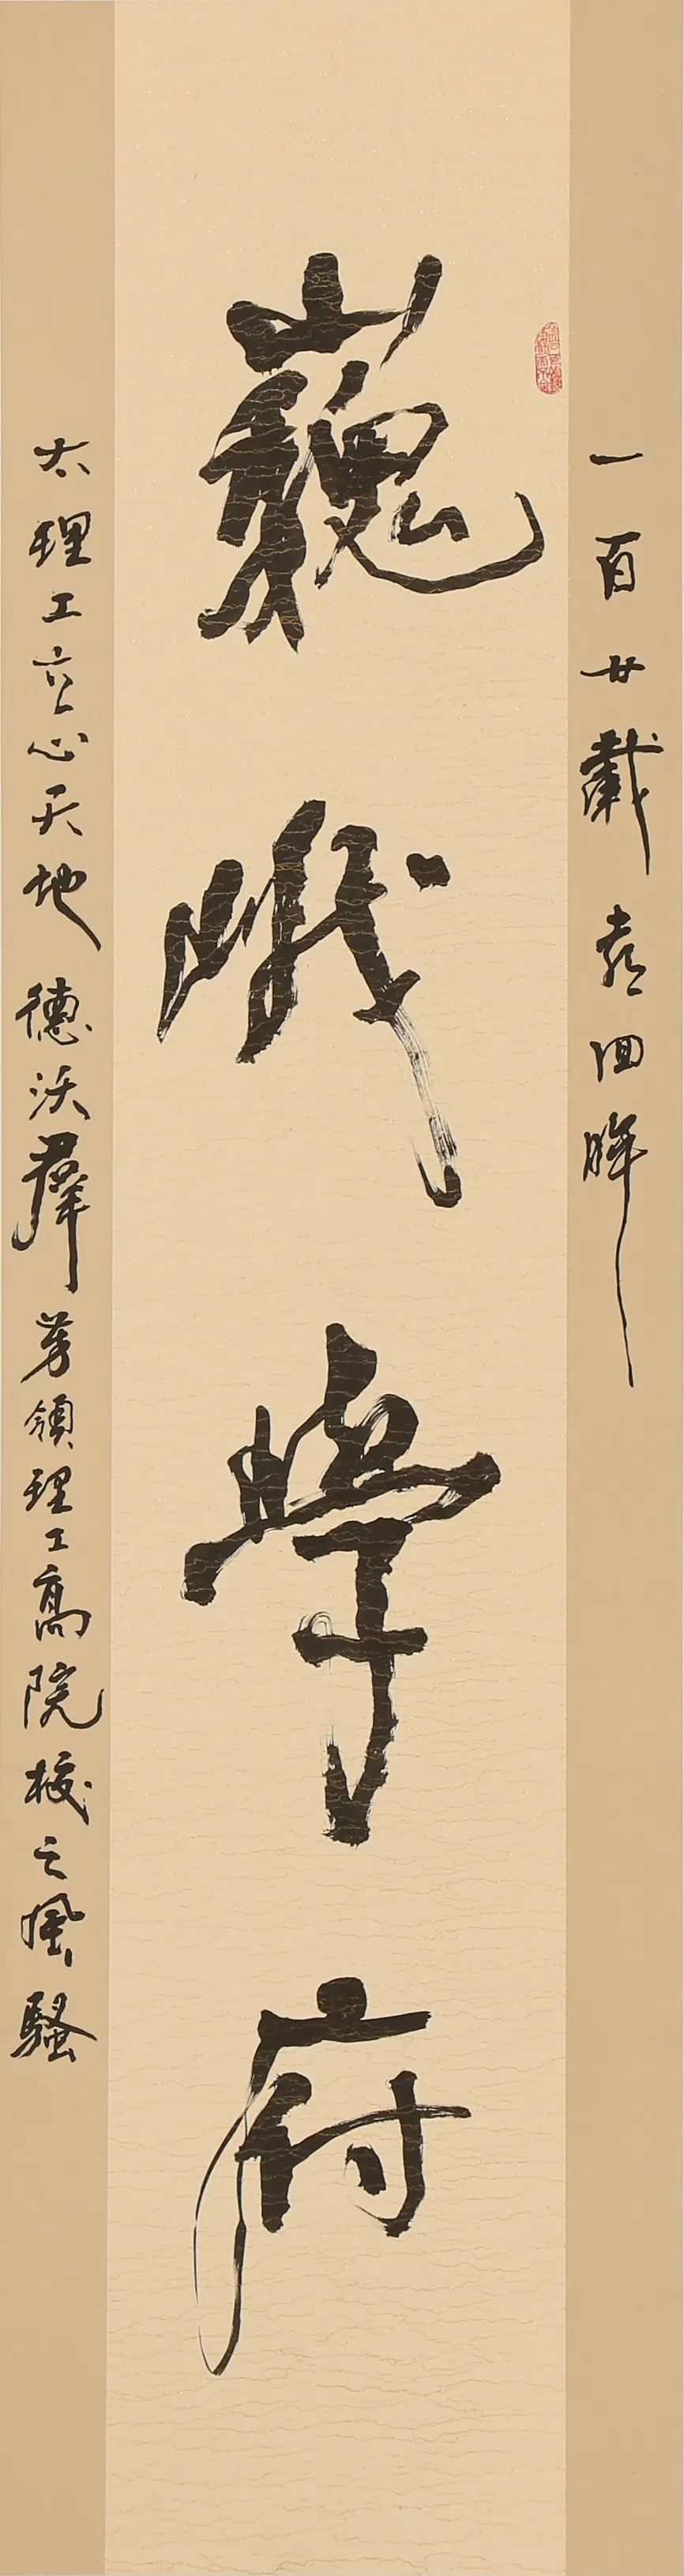 一百廿載喜回眸
巍峨學府
太理工立心天地德沃羣芳領理工高院校之風騷